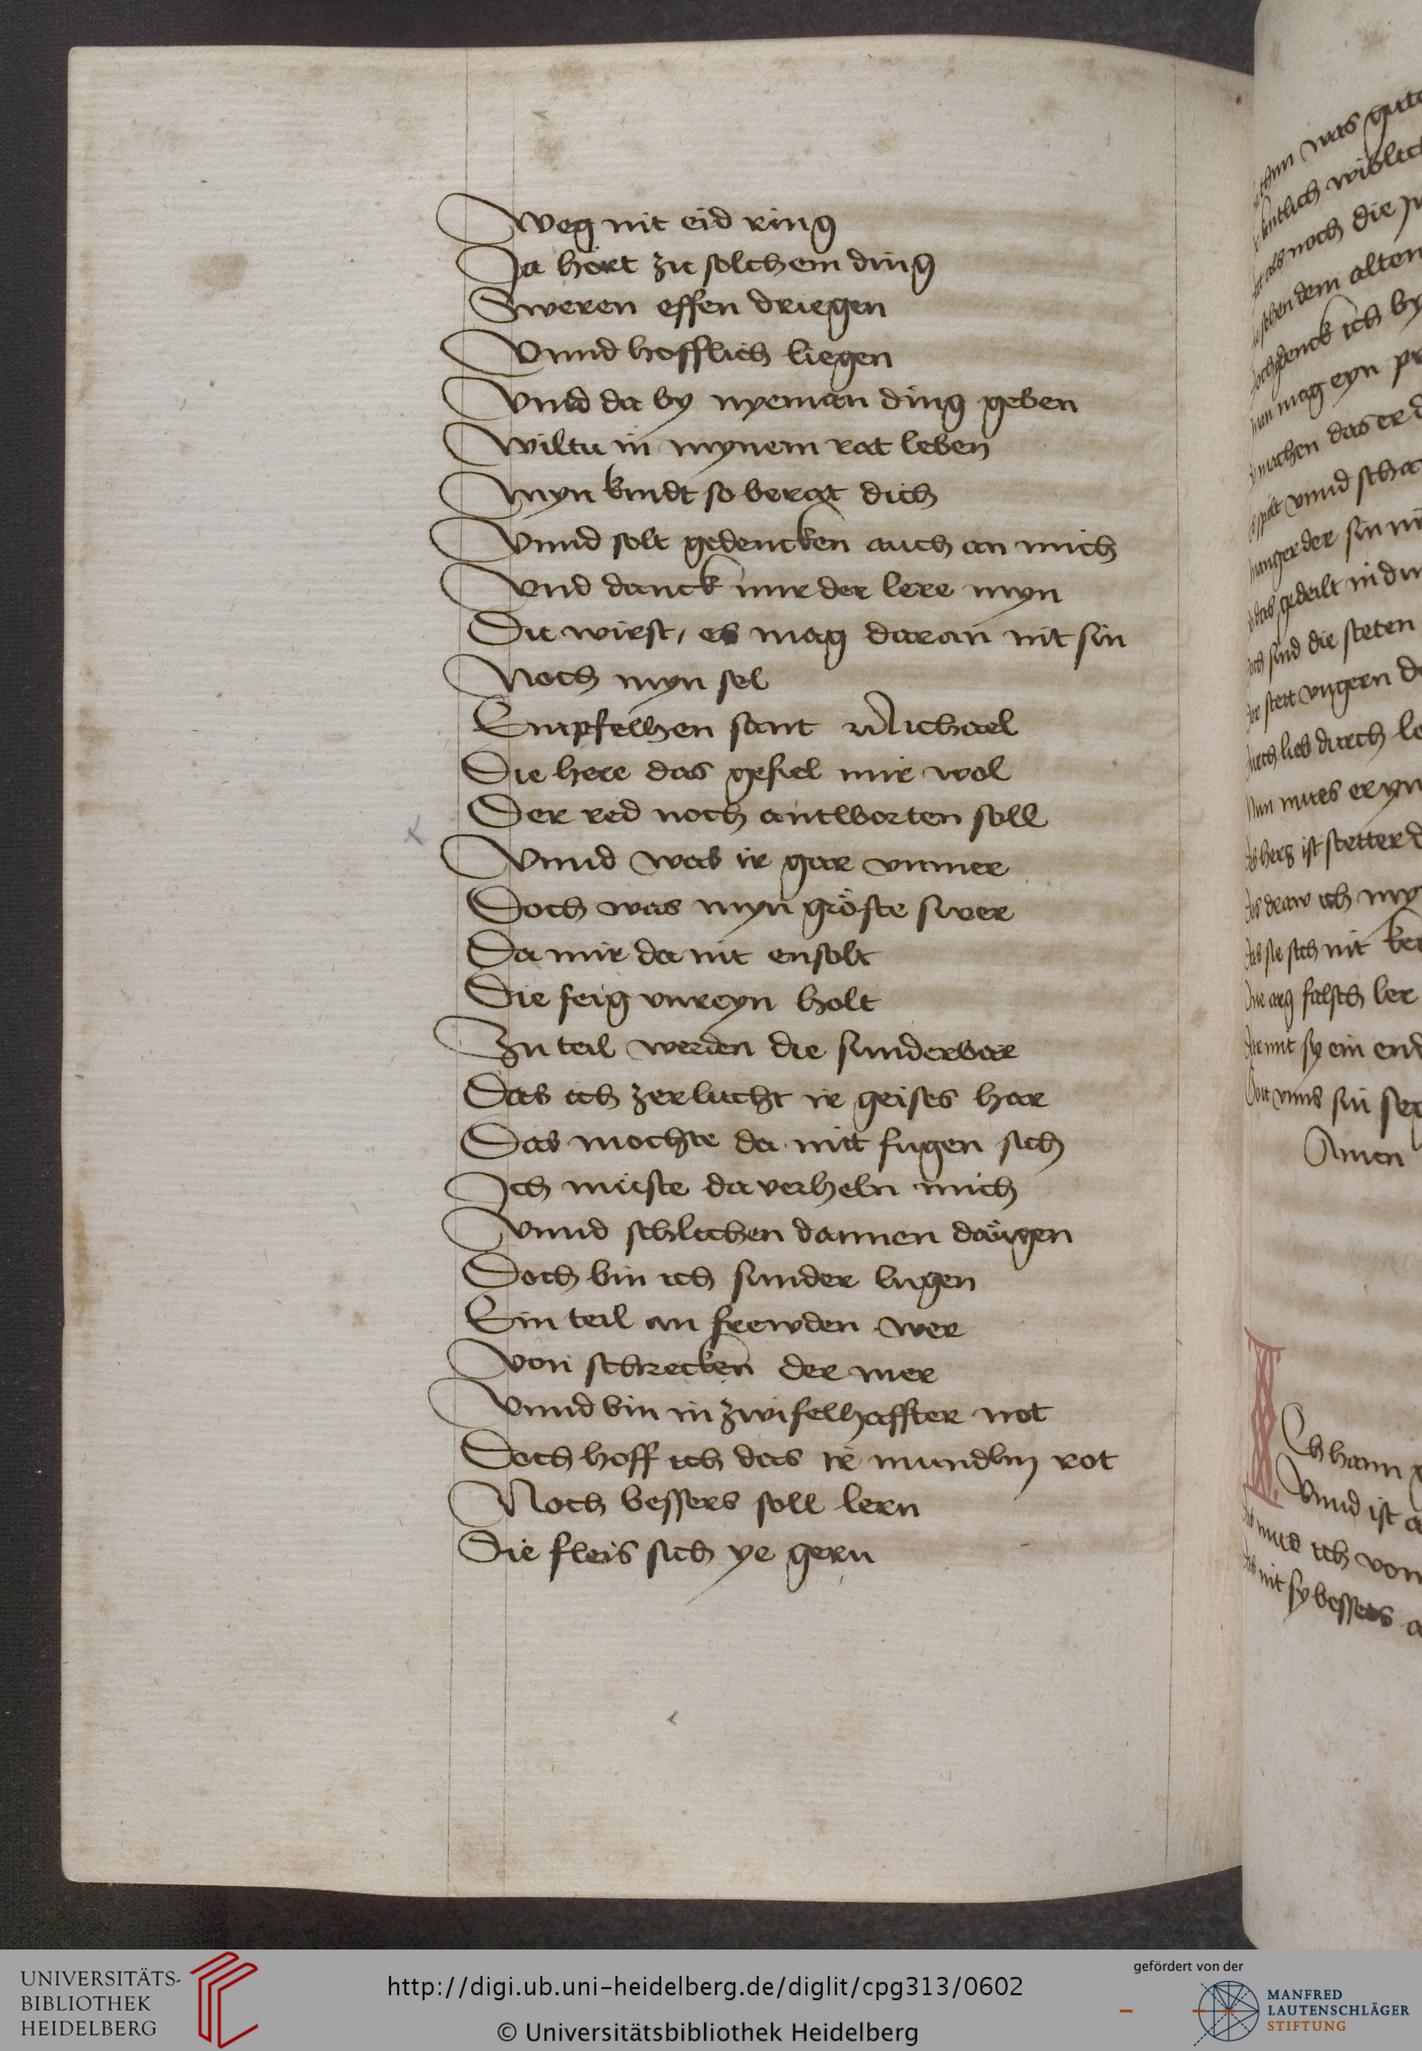 Weg nit eid ring
Ja hört zu solchem ding
Sweren effen driegen
Vnnd hofflich liegen
Vnnd da by nyeman ding geben
Wiltu in mynem rat leben
Myn kindt so berat dich
Vnnd solt gedencken auch an mich
Vnd danck mir der lere myn
Du wirst, es mag daran nit sin
Noch myn sel
Empfelhen sant Michael
Die here das gefiel mir wol
Der red noch antworten soll
Vnnd was ir gar vnmer
Doch was myn gröste swer
Da mir da nit ensolt
Die feig vnreyn holt
Zu teil werden die sunderbar
Das ich zerlucht ir geises har
Das mochte da nit fugen sich
Ich müste da verheln mich
Vnnd schlichen dannen däugen
Doch bin ich sunder lugen
Ein teil an frewden wer
Von schrecken der mer
Vnnd bin in zwifelhaffter not
Doch hoff ich das ir mundlin rot
Noch bessers soll lern
Die fleis sich ye gern
was gute
wiblich
als noch die
dem alten
denck ich by
man mag eyn
machen das er
vnnd
manger der sin
gedeilt in
sind die steten
stett vngern
durch lieb durch
Nun mues er
hertz ist stetter
ich
das sie sich nit
arg falsch ler
sy ein end
vnns sin
Amen
Ich hann
Vnnd ist
ich von
nit sy bessers
UNIVERSITÄTS-
BIBLIOTHEK
HEIDELBERG
http://digi.ub.uni-heidelberg.de/diglit/cpg313/0602
© Universitätsbibliothek Heidelberg
gefördert von der
MANFRED
LAUTENSCHLÄGER
STIFTUNG